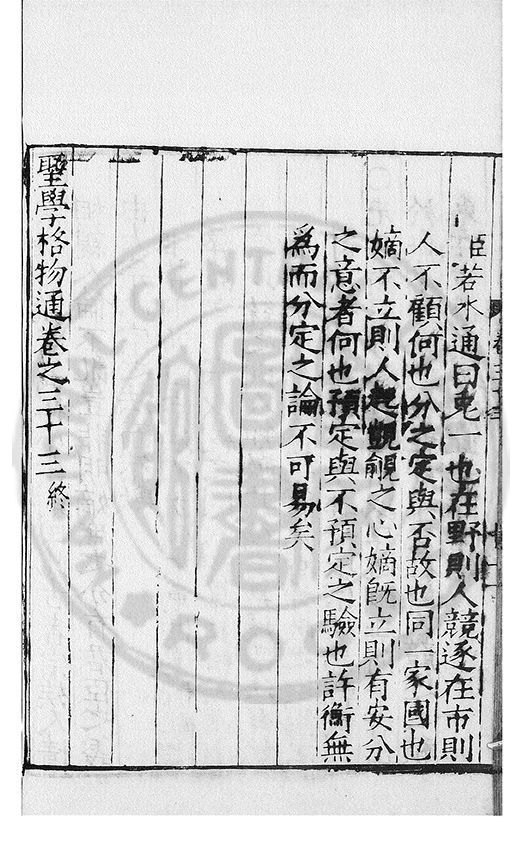 臣若水通曰兎一也在野則人競逐在市則
人不顧何也分之定與否故也同一家國也
嫡不立則人起覬覦之心嫡既立則有安分
之意者何也預定與不預定之驗也許衡無
爲而分定之論不可易矣
聖學格物通卷之三十三終